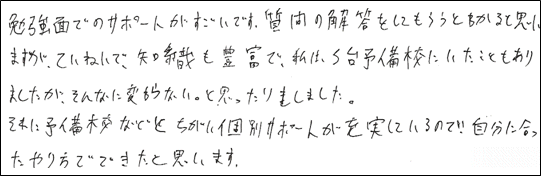 勉強面でのサポートがすごいです。質問の解答をしてもらうとわかると思い
ますが、ていねいで、知識も豊富で、私は、S台予備校にいたこともあり
ましたが、そんなに変わらない。と思ったりもしました。
それに予備校などとちがい個別サポートが充実しているので自分に合っ
たやり方でできたと思います。